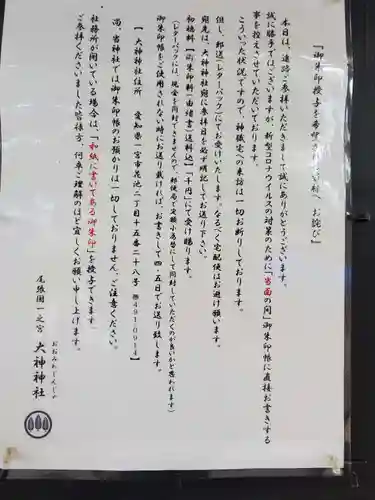 『御朱印授与を希望される皆様へ お詫び』
本日は、遠路ご参拝いただきまして誠にありがとうございます。
誠に勝手ではございますが、新型コロナウイルスの対策のために「当面の間」御朱印帳に直接お書きする
事を控えさせていただいております。
こういった状況ですので、神職宅への来訪は一切お断りしております。
但し、郵送(レターパック)にてお受けいたします。なるべく宅配便はお避け願います。
宛先は、大神神社宛に参拝日を必ず明記してお送り下さい。
初穂料【御朱印料(由緒書)送料込】「千円」にて受け賜ります。
(レターパックには、現金を同封できませんので、郵便局で定額小為替にして同封していただくのが良いかと思われます)
御朱印帳を使用されない時にお送り戴ければ、お書きして四・五日でお送り致します。
【 大神神社住所 愛知県一宮市花池二丁目十五番二十八号 ㊞491-0914 】
尚、当神社では御朱印帳のお預かりは一切しておりません。ご注意ください。
社務所が開いている場合は、「和紙に書いてある御朱印」を授与できます
ご参拝くださいました皆様方、何卒ご理解のほど宜しくお願い申し上げます。
尾張国一之宮 大神神社
おおみわじんじゃ